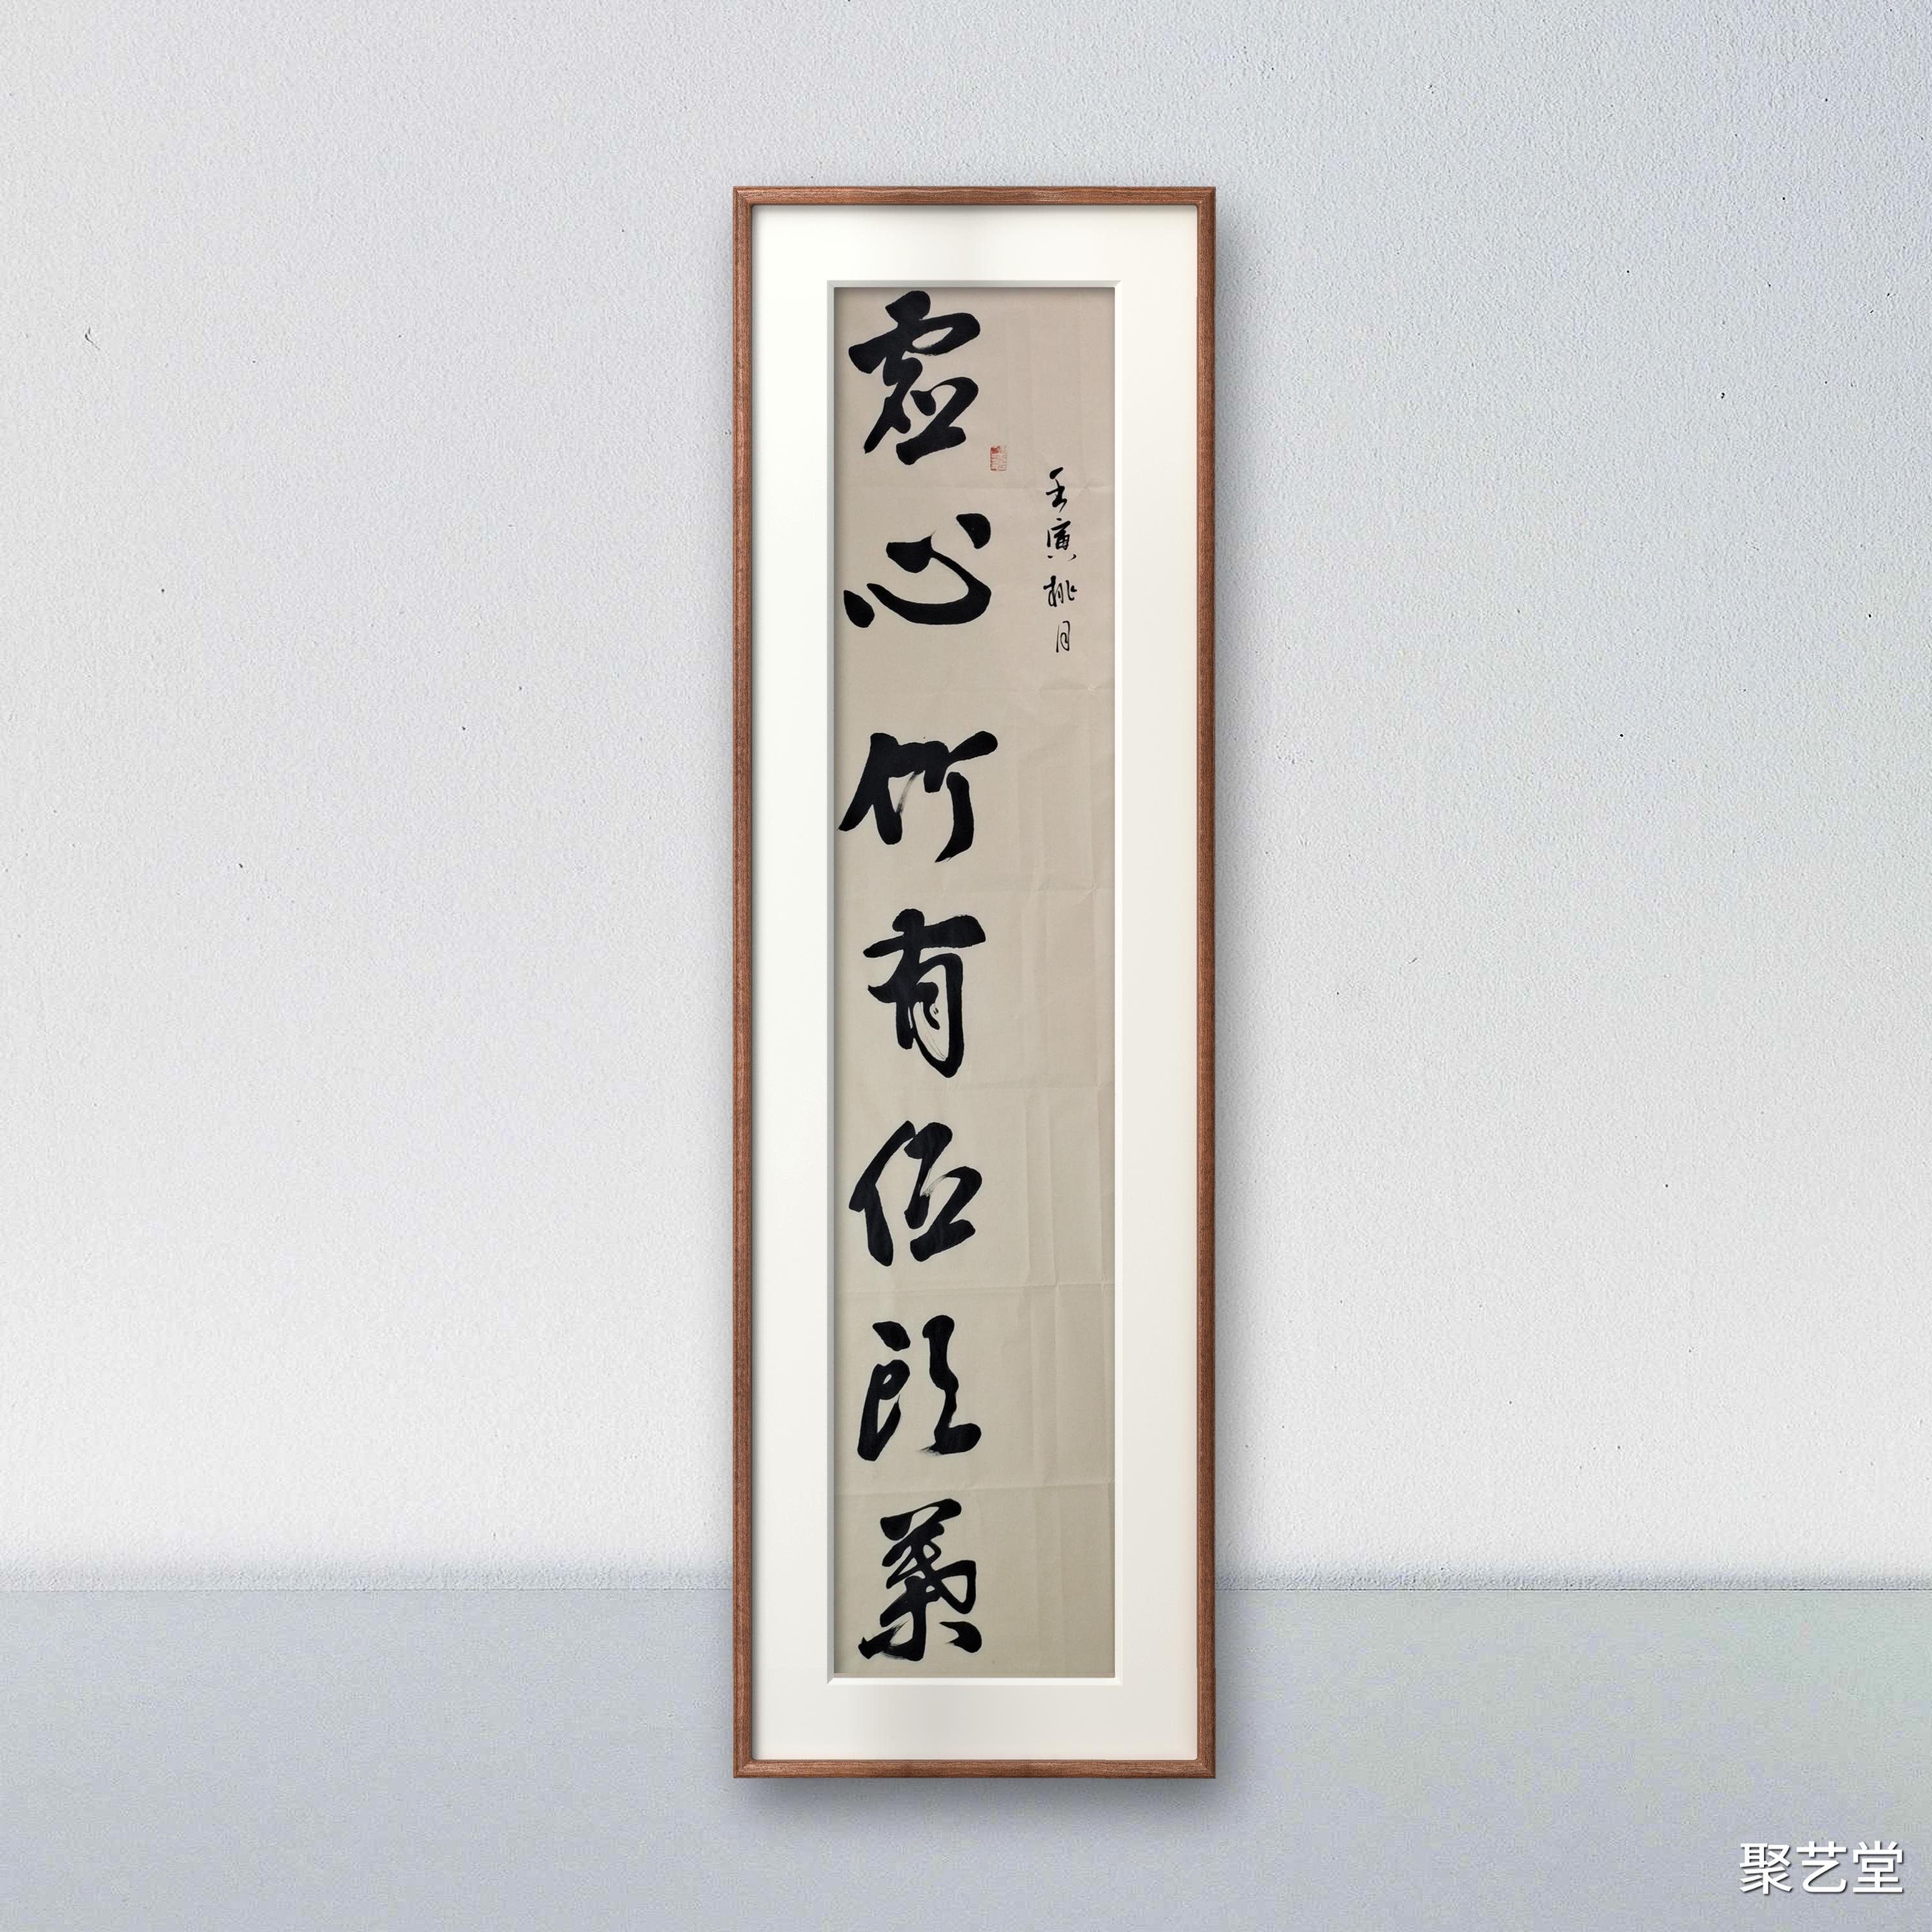 壬寅桃月
虚心竹有低頭葉
聚艺堂